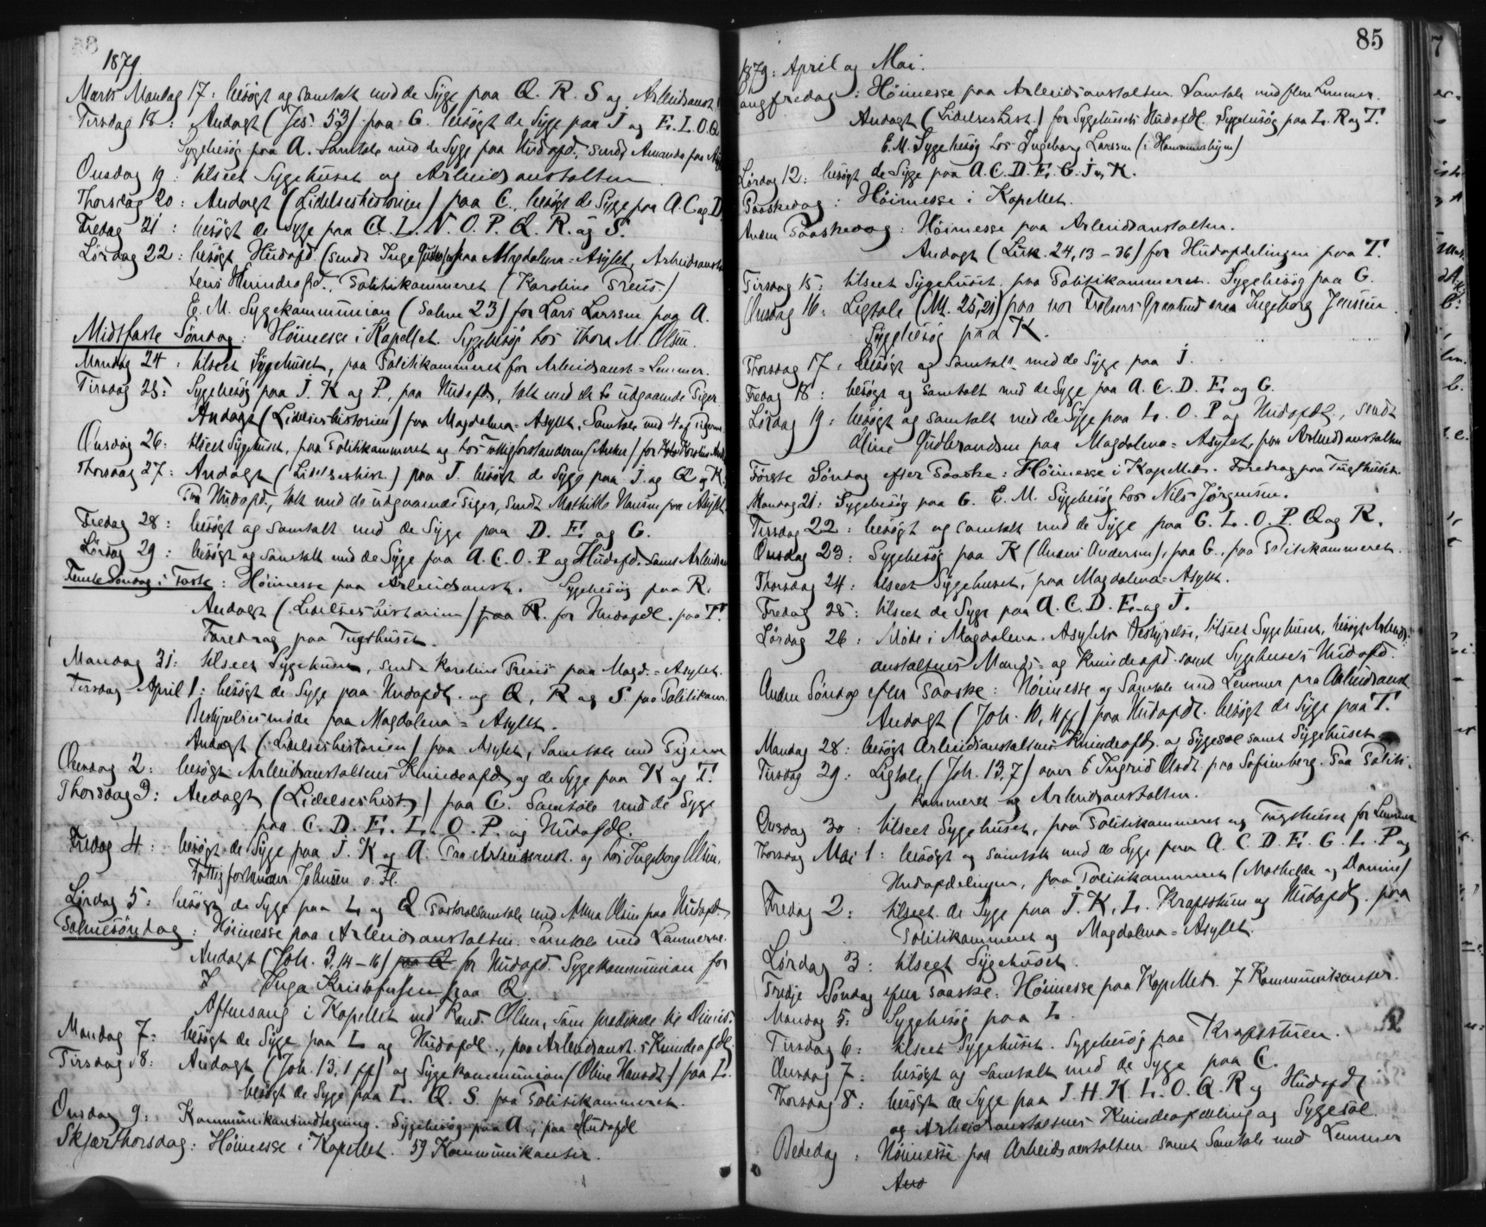 1879
Marts Mandag 17: besögt og samtalt med de Syge paa Q. R. S og Arbeidsanst.
Tirsdag 18: Andagt (Jes. 53) paa G. besögt de Syge paa I og E. L. O. Q.
Sygebesög paa A. Samtale med de Syge paa Hudafd., sendt Amanda paa
Onsdag 19: tilseet Sygehuset og Arbeidsanstalten.
Thorsdag 20: Andagt (Lidelseshistorien) paa C., besögt de Syge paa A. C og D
Fredag 21: besögt de Syge paa A. L. N. O. P. Q. R. og S.
Lördag 22: besögt Hudafd. (sendt Inga paa Magdalena-Asylet, Arbeidsanstal-
tens Kvindeafd. Politikammeret (Karoline Treiis)
E. M. Sygekommunion (Salme 23) for Lars Larssen paa A.
Midtfaste Söndag: Höimesse i Kapellet. Sygebesög hos Thora M. Olsen.
Mandag 24: tilseet Sygehuset, paa Politikammeret for Arbeidsanst-Lemmer.
Tirsdag 25: Sygebesög paa I. K og P., paa Hudafd., talt med de to udgaaende Piger.
Andagt (Lidelseshistorien) paa Magdalena-Asylet, Samtale med 4 af Pigerne
Onsdag 26: tilseet Sygehuset, paa Politikammeret og hos Fattigforstanderen (Anker) for
Thorsdag 27: Andagt (Lidelseshist.) paa I. besögt de Syge paa I. og Q og K.
Paa Hudafd., talt med de udgaaende Piger, sendt Mathilde Hansen paa Asylet
Fredag 28: besögt og samtalt med de Syge paa D. E. og G.
Lördag 29: besögt og samtalt med de Syge paa A. C. O. P og Hudafd. samt Arbeidsan
Femte Söndag i Faste: Höimesse paa Arbeidsanst. Sygebesög paa R.
Andagt (Lidelseshistorien) paa R. for Hudafdl. paa T.
Foredrag paa Tugthuset.
Mandag 31: tilseet Sygehuset, sendt Karoline Treiis paa Magd.-Asylet.
Tirsdag April 1: besögt de Syge paa Hudafdl. og Q, R og S paa Politikam.
Bestyrelsesmöde paa Magdalena-Asylet.
Andagt (Lidelseshistorien) paa Asylet, Samtale med Pigerne
Onsdag 2: besögt Arbeidsanstaltens Kvindeafdl. og de Syge paa K og T.
Thorsdag 3: Andagt (Lidelseshist.) paa C. Samtale med de Syge
paa C. D. E. L. O. P. og Hudafdl.
Fredag 4: besögt de Syge paa I. K og A. Paa Arbeidsanst. og hos Ingeborg Olsen,
Fattigforstander Johnsen o. Fl.
Lördag 5: besögt de Syge paa L og Q. Pastoralsamtale med Alma Olsen paa Hudafd.
Palmesöndag: Höimesse paa Arbeidsanstalten. Samtale med Lemmerne.
Andagt (Joh. 3, 14-16) paa Q for Hudafd. Sygekommunion for
Inga Kristofersen paa Q.
Aftensang i Kapellet ved Kand. Olsen, som prædikede til Dimis.
Mandag 7: besögt de Syge paa L og Hudafdl., paa Arbeidsanst.s Kvindeafdl.
Tirsdag 8: Andagt (Joh. 13, 1 ff) og Sygekommunion (Oline Hansdt) paa L.
besögt de Syge paa L. Q. S. paa Politikammeret.
Onsdag 9: Kommunikantindtegning. Sygebesög paa A, paa Hudafdl
Skjærthorsdag: Höimesse i Kapellet. 59 Kommunikanter.
85
1879: April og Mai.
Langfredag: Höimesse paa Arbeidsanstalten. Samtale med flere Lemmer.
Andagt (Lidelseshist.) for Sygehusets Hudafdl. Sygebesög paa L. R og T.
E. M. Sygebesög hos Ingeborg Larssen (i Hammersborg)
Lördag 12: besögt de Syge paa A. C. D. E. G. I og K.
Paaskedag: Höimesse i Kapellet.
Anden Paaskedag: Höimesse paa Arbeidsanstalten.
Andagt (Luk. 24, 13-36) for Hudafdelingen paa T.
Tirsdag 15: tilseet Sygehuset, paa Politikammeret. Sygebesög paa G.
Onsdag 16: Ligtale (Mt. 25, 21) paa vor Frelsers Gravlund over Ingeborg Jenssen
Sygebesög paa K.
Thorsdag 17: besögt og samtalt med de Syge paa I.
Fredag 18: besögt og samtalt med de Syge paa A. C. D. E. og G.
Lördag 19: besögt og samtalt med de Syge paa L. O. P og Hudafdl., sendt
Oline Gulbrandsen paa Magdalena-Asylet, paa Arbeidsanstalten
Förste Söndag efter Paaske: Höimesse i Kapellet. Foredrag paa Tugthuset.
Mandag 21: Sygebesög paa G. E. M. Sygebesög hos Nils Jörgensen.
Tirsdag 22: besögt og samtalt med de Syge paa G. L. O. P. Q og R.
Onsdag 23: Sygebesög paa K (Anders Andersen), paa G., paa Politikammeret.
Thorsdag 24: tilseet Sygehuset, paa Magdalena-Asylet.
Fredag 25: tilseet de Syge paa A. C. D. E. og I.
Lördag 26: Möde i Magdalena-Asylets Bestyrelse, tilseet Sygehuset, besögt Arbeids-
anstaltens Mands- og Kvindeafd. samt Sygehusets Hudafd.
Anden Söndag efter Paaske: Höimesse og Samtale med Lemmer paa Arbeidsanst
Andagt (Joh. 10, 11 ff) paa Hudafdl. besögt de Syge paa T.
Mandag 28: besögt Arbeidsanstaltens Kvindeafdl. og Sygesal samt Sygehuset
Tirsdag 29: Ligtale (Joh. 13, 7) over Ingrid Olsdt. paa Sofienberg. Paa Politi-
kammeret og Arbeidsanstalten.
Onsdag 30: tilseet Sygehuset, paa Politikammeret og Tugthuset for Lemmer
Thorsdag Mai 1: besögt og samtalt med de Syge paa A. C. D. E. G. L. P og
Hudafdelingen, paa Politikammeret (Mathilde og Damine)
Fredag 2: tilseet de Syge paa I. K. L. Krapstuen og Hudafdl. paa
Politikammeret og Magdalena-Asylet.
Lördag 3: tilseet Sygehuset.
Tredje Söndag efter Paaske: Höimesse paa Kapellet. 7 Kommunikanter.
Mandag 5: Sygebesög paa L.
Tirsdag 6: tilseet Sygehuset. Sygebesög paa Krapstuen.
Onsdag 7: besögt og samtalt med de Syge paa C.
Thorsdag 8: besögt de Syge paa I. H. K. L. O. Q. R og Hudafdl
og Arbeidsanstaltens Kvindeafdeling og Sygesal.
Bededag: Höimesse paa Arbeidsanstalten samt Samtale med Lemmer
And